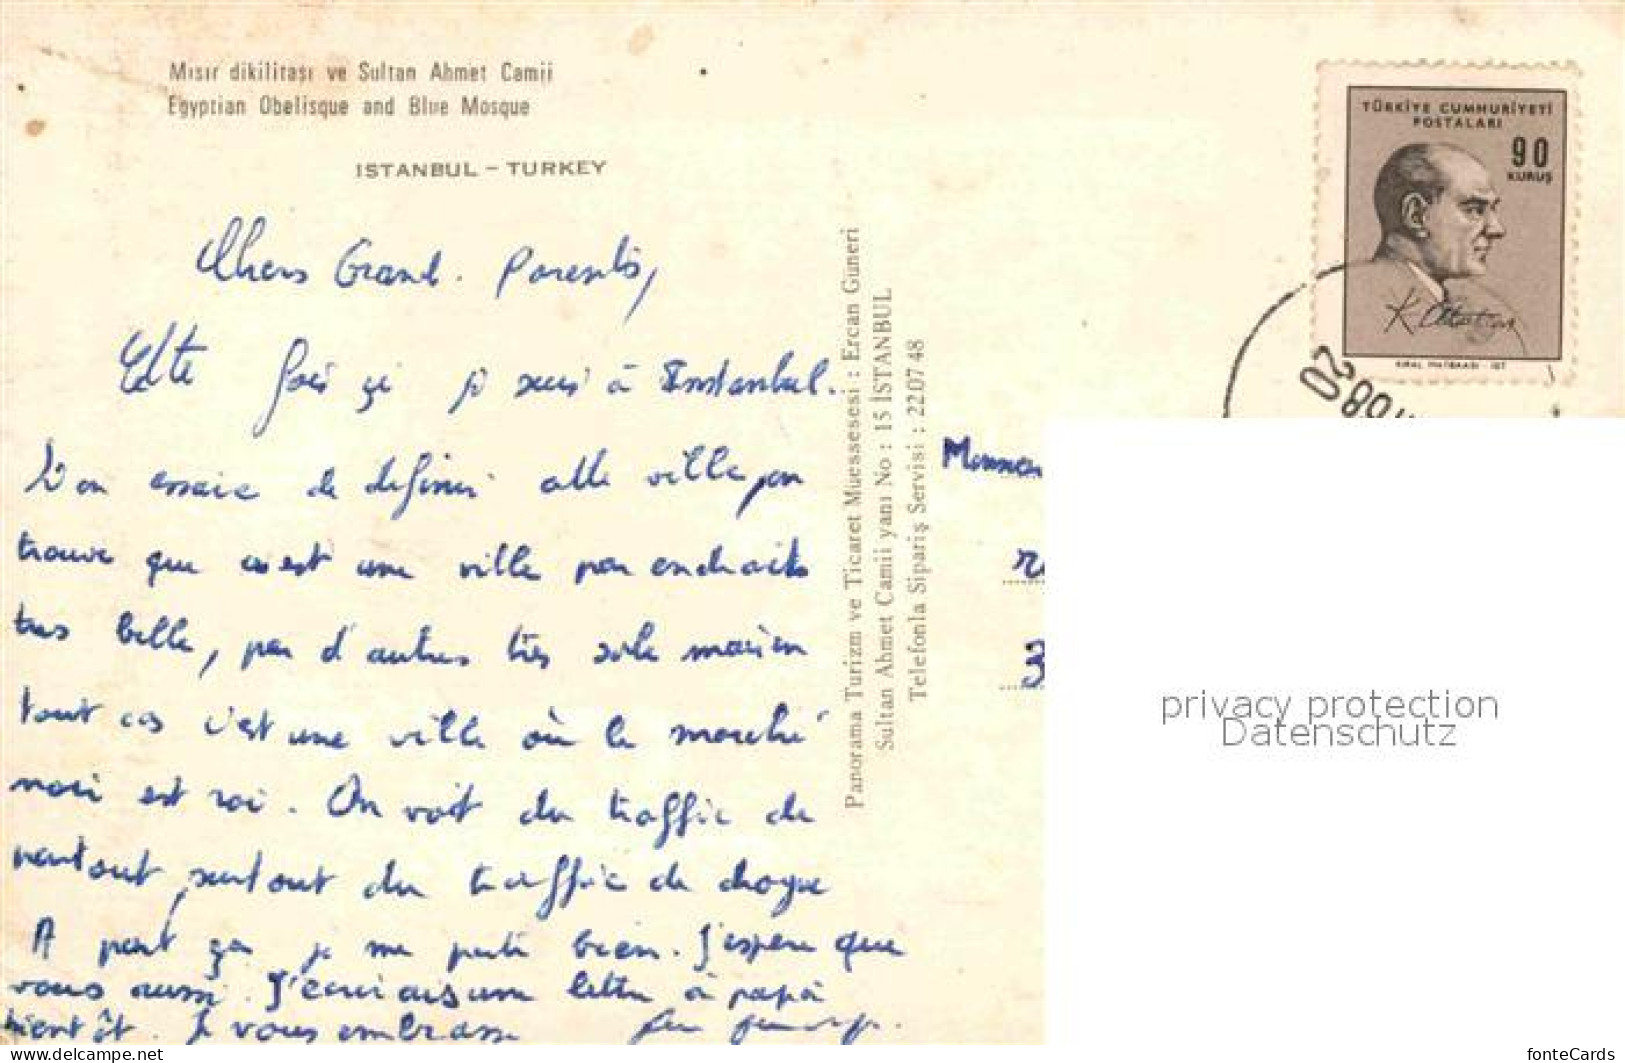 Mısır dikilitaşı ve Sultan Ahmet Camii
Egyptian Obelisque and Blue Mosque
ISTANBUL – TURKEY
TÜRKİYE CUMHURİYETİ
POSTALARI
90
KURUŞ
K. Atatürk
KIRAL MATBAASI - IST
Chers Grand. Parents,
Cette fois çi je suis à Instanbul.
L'on essaie de definir cette ville, on
trouve que c'est une ville par endroits
très belle, par d'autres très sale mais en
tout cas c'est une ville où le marché
noir est roi. On voit du traffic de
partout, surtout du traffic de drogue
A part ça je me porte bien. J'espère que
vous aussi. J'écrirais une lettre à papa
bientôt. Je vous embrasse
Panorama Turizm ve Ticaret Muessesesi : Ercan Güneri
Sultan Ahmet Camii yanı No : 15 İSTANBUL
Telefonla Sipariş Servisi : 22 07 48
privacy protection
Datenschutz
fonteCards
www.delcampe.net